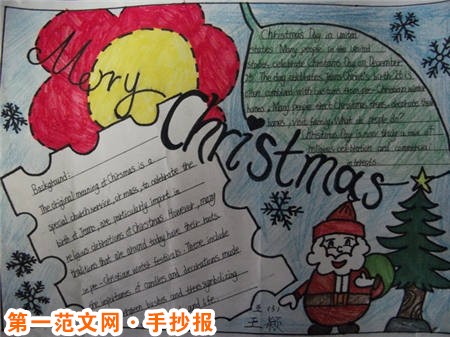 Marry
Christmas
Christmas Day in united
states. Many people in the United
states celebrate Christmas Day on December
25. The day celebrates Jesus Christ's birth. It is
often combined with customs from pre-Christian winter
Many people erect Christmas trees, decorate their
homes, visit family. What do people do?
Christmas Day is now really a mix of
religious celebration and commercial
interests.
Background:
The original meaning of Christmas is a
special church service, or mass, to celebrate the
birth of Jesus, are particularly import in
religious celebrations of Christmas. However, many
traditions that are around today have their roots
in pre-Christian winter festivals. These include
the importance of candles and decorations made
bushes and trees symbolizing
and life
王颖
第一范文网·手抄报